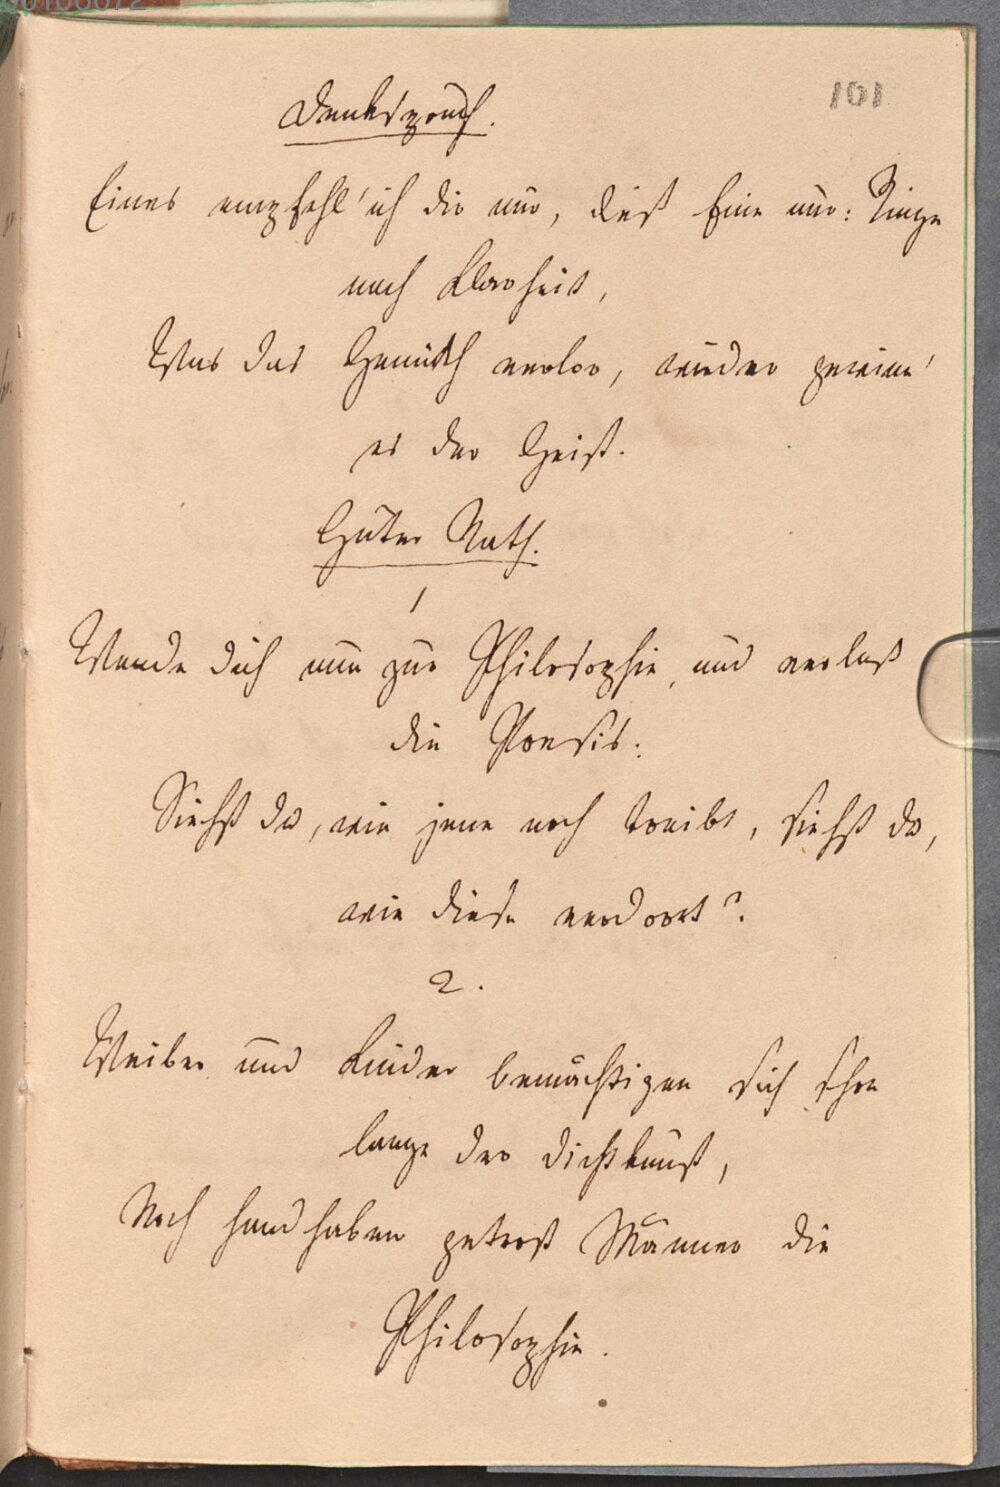 00106072
101
Denkspruch.
Eines empfehl' ich dir nur, dieß Eine nur: Ringe
nach Klarheit,
Was das Gemüth verlor, wieder gewinn'
es der Geist.
Guter Rath.
1
Wende dich nun zur Philosophie, und verlaß
die Poesis:
Siehst du, wie jene noch treibt, siehst du,
wie diese verdorrt?
2.
Weiber und Kinder bemächtigen sich schon
lange der Dichtkunst,
Noch handhaben getrost Männer die
Philosophie.